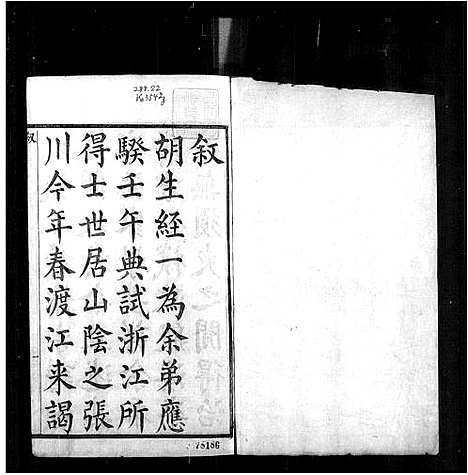 288.22
叙
胡生經一為余弟應
騤壬午典試浙江所
得士世居山陰之張
川今年春渡江来謁
叙
75186